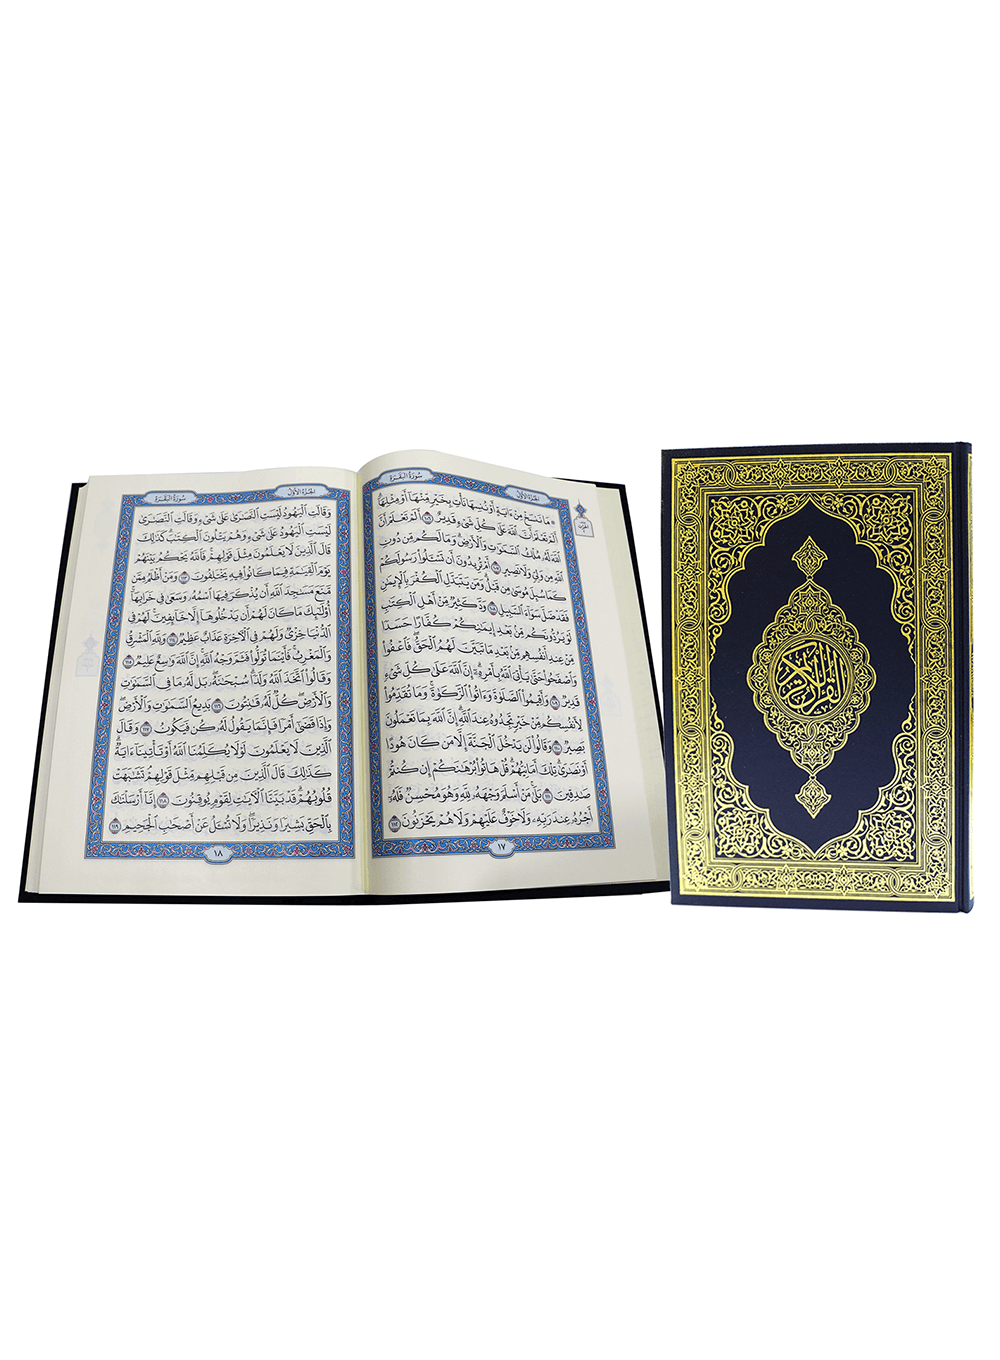 الجُزْءُ الأَوَّلُ سُورَةُ البَقَرَةِ
۞ مَا نَنسَخْ مِنْ ءَايَةٍ أَوْ نُنسِهَا نَأْتِ بِخَيْرٍ مِّنْهَآ أَوْ مِثْلِهَآۗ
أَلَمْ تَعْلَمْ أَنَّ ٱللَّهَ عَلَىٰ كُلِّ شَىْءٍ قَدِيرٌ ١٠٦ أَلَمْ تَعْلَمْ أَنَّ
ٱللَّهَ لَهُۥ مُلْكُ ٱلسَّمَٰوَٰتِ وَٱلْأَرْضِۗ وَمَا لَكُم مِّن دُونِ
ٱللَّهِ مِن وَلِىٍّ وَلَا نَصِيرٍ ١٠٧ أَمْ تُرِيدُونَ أَن تَسْـَٔلُوا۟ رَسُولَكُمْ
كَمَا سُئِلَ مُوسَىٰ مِن قَبْلُۗ وَمَن يَتَبَدَّلِ ٱلْكُفْرَ بِٱلْإِيمَٰنِ
فَقَدْ ضَلَّ سَوَآءَ ٱلسَّبِيلِ ١٠٨ وَدَّ كَثِيرٌ مِّنْ أَهْلِ ٱلْكِتَٰبِ
لَوْ يَرُدُّونَكُم مِّنۢ بَعْدِ إِيمَٰنِكُمْ كُفَّارًا حَسَدًا
مِّنْ عِندِ أَنفُسِهِم مِّنۢ بَعْدِ مَا تَبَيَّنَ لَهُمُ ٱلْحَقُّۖ فَٱعْفُوا۟
وَٱصْفَحُوا۟ حَتَّىٰ يَأْتِىَ ٱللَّهُ بِأَمْرِهِۦٓۗ إِنَّ ٱللَّهَ عَلَىٰ كُلِّ شَىْءٍ
قَدِيرٌ ١٠٩ وَأَقِيمُوا۟ ٱلصَّلَوٰةَ وَءَاتُوا۟ ٱلزَّكَوٰةَۚ وَمَا تُقَدِّمُوا۟
لِأَنفُسِكُم مِّنْ خَيْرٍ تَجِدُوهُ عِندَ ٱللَّهِۗ إِنَّ ٱللَّهَ بِمَا تَعْمَلُونَ
بَصِيرٌ ١١٠ وَقَالُوا۟ لَن يَدْخُلَ ٱلْجَنَّةَ إِلَّا مَن كَانَ هُودًا
أَوْ نَصَٰرَىٰۗ تِلْكَ أَمَانِيُّهُمْۗ قُلْ هَاتُوا۟ بُرْهَٰنَكُمْ إِن كُنتُمْ
صَٰدِقِينَ ١١١ بَلَىٰ مَنْ أَسْلَمَ وَجْهَهُۥ لِلَّهِ وَهُوَ مُحْسِنٌ فَلَهُۥٓ
أَجْرُهُۥ عِندَ رَبِّهِۦ وَلَا خَوْفٌ عَلَيْهِمْ وَلَا هُمْ يَحْزَنُونَ ١١٢
١٧
الجُزْءُ الأَوَّلُ سُورَةُ البَقَرَةِ
وَقَالَتِ ٱلْيَهُودُ لَيْسَتِ ٱلنَّصَٰرَىٰ عَلَىٰ شَىْءٍ وَقَالَتِ ٱلنَّصَٰرَىٰ
لَيْسَتِ ٱلْيَهُودُ عَلَىٰ شَىْءٍ وَهُمْ يَتْلُونَ ٱلْكِتَٰبَۗ كَذَٰلِكَ
قَالَ ٱلَّذِينَ لَا يَعْلَمُونَ مِثْلَ قَوْلِهِمْۚ فَٱللَّهُ يَحْكُمُ بَيْنَهُمْ
يَوْمَ ٱلْقِيَٰمَةِ فِيمَا كَانُوا۟ فِيهِ يَخْتَلِفُونَ ١١٣ وَمَنْ أَظْلَمُ مِمَّن
مَّنَعَ مَسَٰجِدَ ٱللَّهِ أَن يُذْكَرَ فِيهَا ٱسْمُهُۥ وَسَعَىٰ فِى خَرَابِهَآۚ
أُو۟لَٰٓئِكَ مَا كَانَ لَهُمْ أَن يَدْخُلُوهَآ إِلَّا خَآئِفِينَۚ لَهُمْ فِى
ٱلدُّنْيَا خِزْىٌ وَلَهُمْ فِى ٱلْءَاخِرَةِ عَذَابٌ عَظِيمٌ ١١٤ وَلِلَّهِ ٱلْمَشْرِقُ
وَٱلْمَغْرِبُۚ فَأَيْنَمَا تُوَلُّوا۟ فَثَمَّ وَجْهُ ٱللَّهِۚ إِنَّ ٱللَّهَ وَٰسِعٌ عَلِيمٌ ١١٥
وَقَالُوا۟ ٱتَّخَذَ ٱللَّهُ وَلَدًاۗ سُبْحَٰنَهُۥۖ بَل لَّهُۥ مَا فِى ٱلسَّمَٰوَٰتِ
وَٱلْأَرْضِۖ كُلٌّ لَّهُۥ قَٰنِتُونَ ١١٦ بَدِيعُ ٱلسَّمَٰوَٰتِ وَٱلْأَرْضِۖ
وَإِذَا قَضَىٰٓ أَمْرًا فَإِنَّمَا يَقُولُ لَهُۥ كُن فَيَكُونُ ١١٧ وَقَالَ
ٱلَّذِينَ لَا يَعْلَمُونَ لَوْلَا يُكَلِّمُنَا ٱللَّهُ أَوْ تَأْتِينَآ ءَايَةٌۗ
كَذَٰلِكَ قَالَ ٱلَّذِينَ مِن قَبْلِهِم مِّثْلَ قَوْلِهِمْۘ تَشَٰبَهَتْ
قُلُوبُهُمْۗ قَدْ بَيَّنَّا ٱلْءَايَٰتِ لِقَوْمٍ يُوقِنُونَ ١١٨ إِنَّآ أَرْسَلْنَٰكَ
بِٱلْحَقِّ بَشِيرًا وَنَذِيرًاۖ وَلَا تُسْـَٔلُ عَنْ أَصْحَٰبِ ٱلْجَحِيمِ ١١٩
١٨
القرآن الكريم